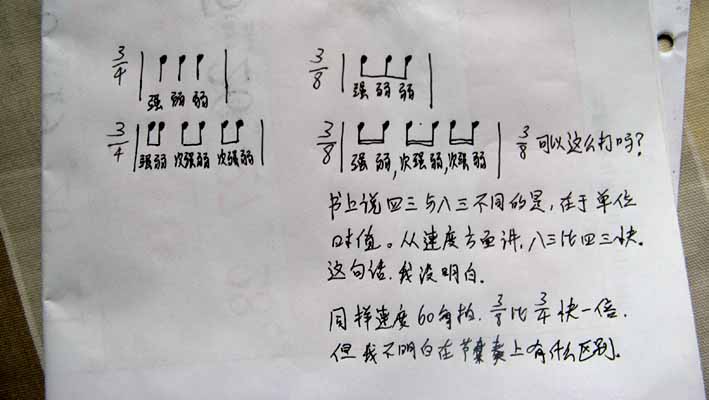 3/4 强 弱 弱
3/8 强 弱 弱
3/4 强弱 次强弱 次强弱
3/8 强 弱,次强弱,次强弱 3/8 可以这么打吗?
书上说四三与八三不同的是,在于单位
时值。从速度方面讲,八三比四三快.
这句话.我没明白.
同样速度60每拍.3/8比3/4快一倍.
但我不明白在节奏上有什么区别.